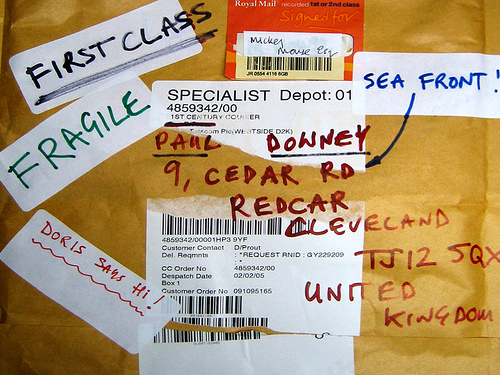 Royal Mail recorded 1st or 2nd class
Signed for
Mickey
Mouse Esq
JR 0554 4116 6GB
FIRST CLASS
FRAGILE
SEA FRONT!
SPECIALIST Depot: 01
4859342/00
1ST CENTURY COURIER
Telecom Plc(WESTSIDE D2K)
PAUL DOWNEY
9, CEDAR RD
REDCAR
CLEVELAND
TJ12 5QX
UNITED
KINGDOM
DORIS SAYS Hi!
4859342/00001HP3 9YF
Customer Contact D/Prout
Del. Reqmnts : *REQUEST RNID : GY229209
CC Order No 4859342/00
Despatch Date 02/02/05
Box 1
Customer Order No 091095165